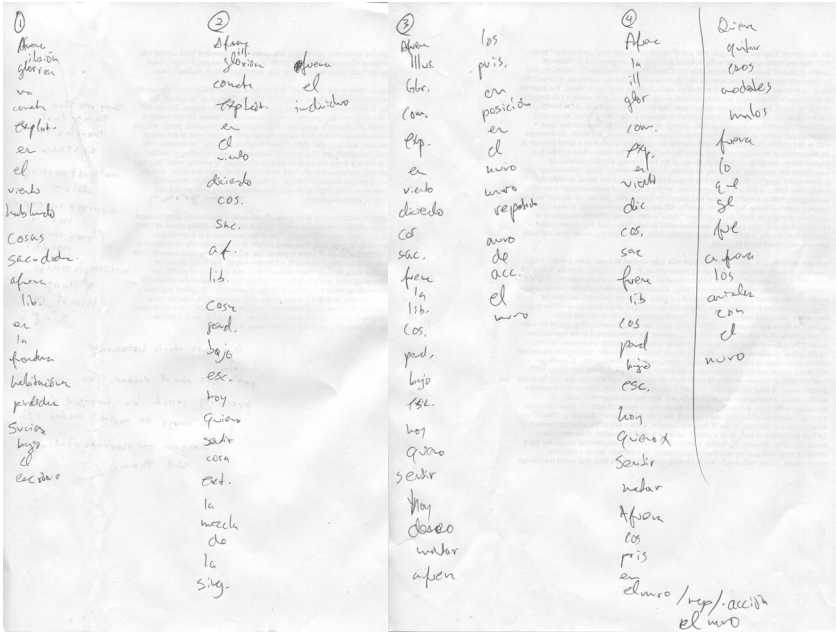 1
Afuera
ilusión
gloriosa
va
cometa
explot.
en
el
viento
hablando
cosas
sacudida
afuera
lib.
en
la
frontera
habitación
perdida
sucia
bajo
el
escritorio
2
Afuera
ill.
gloriosa
cometa
explot.
en
el
viento
diciendo
cos.
sac.
af.
lib.
cosa
pard.
bajo
esc.
hoy
quiero
sentir
cosa
ext.
la
mezcla
de
la
sing.
fuera
el
individuo
3
Afuera
Illus
Glor.
Com.
Exp.
en
viento
diciendo
cos
sac.
fuera
la
lib.
cos.
pard.
bajo
esc.
hoy
quiero
sentir
hoy
deseo
matar
afuera
los
pris.
en
posición
en
el
muro
muro
repetido
muro
de
acc.
el
muro
4
Afuera
la
ill
glor
com.
exp.
en
viento
dic
cos.
sac
fuera
lib
cos
pard
bajo
esc.
hoy
quiero
sentir
matar
Afuera
los
pris
en
el muro / rep / acción
el muro
Quien
quitar
esos
modales
malos
fuera
lo
que
se
fue
afuera
los
animales
con
el
muro